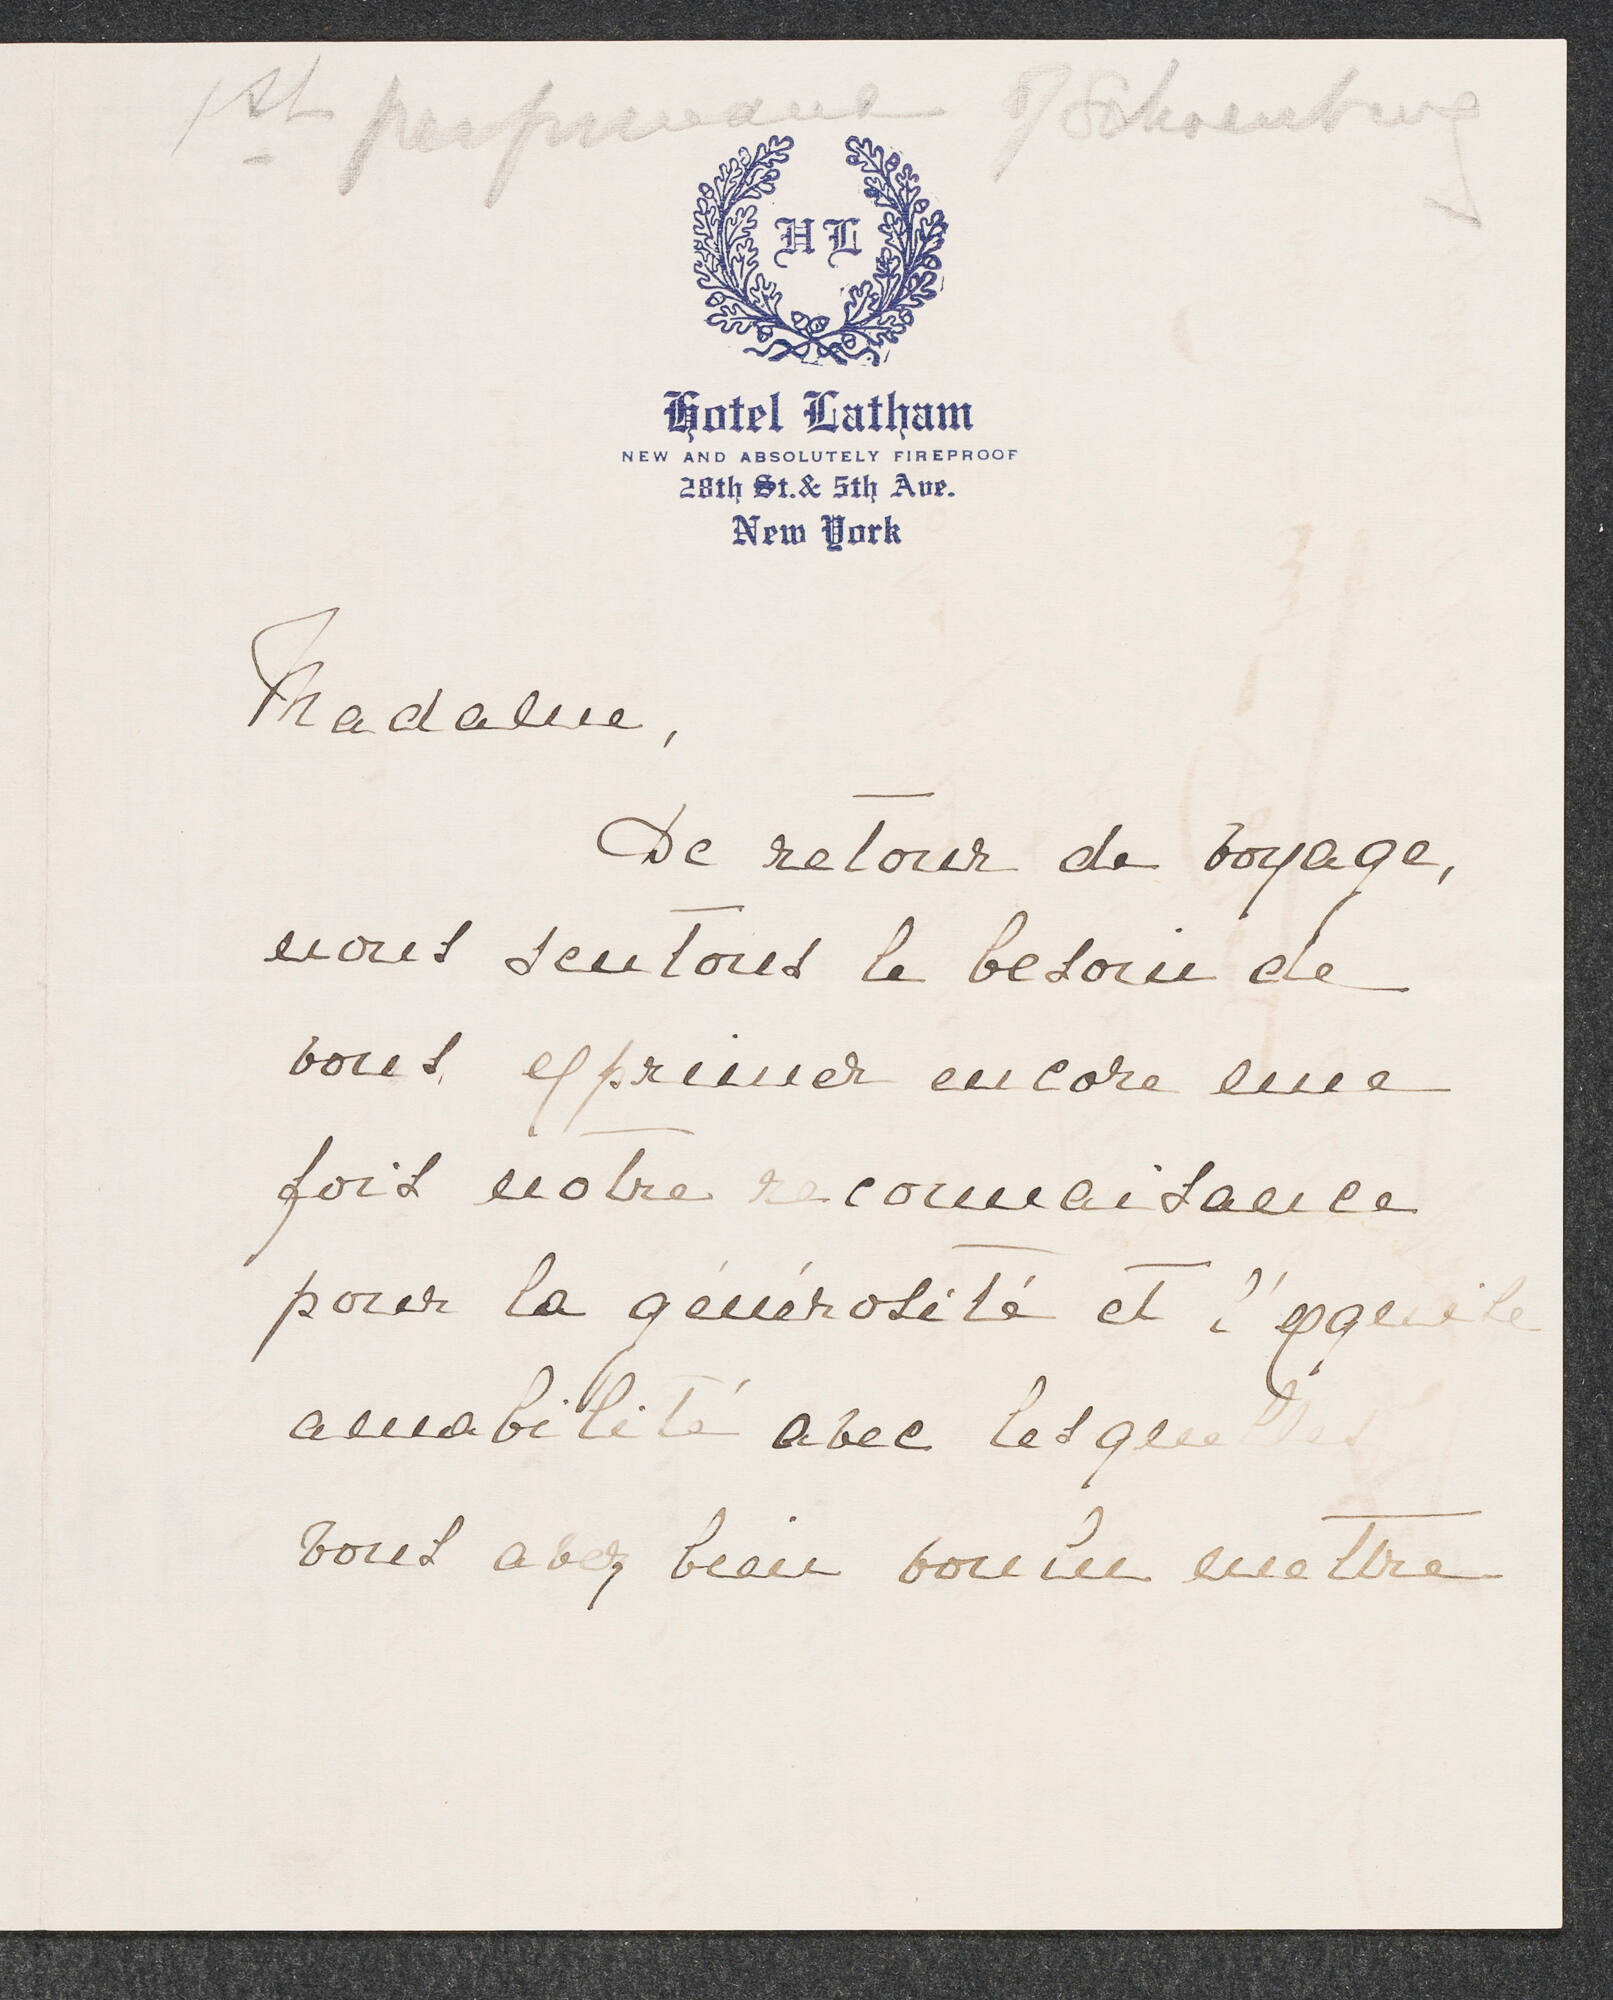 1st performance of Schoenberg
HL
Hotel Latham
NEW AND ABSOLUTELY FIREPROOF
28th St. & 5th Ave.
New York
Madame,
De retour de voyage,
nous sentons le besoin de
vous exprimer encore une
fois notre reconnaisance
pour la générosité et l'exquise
amabilité avec lesquelles
vous avez bien voulu mettre